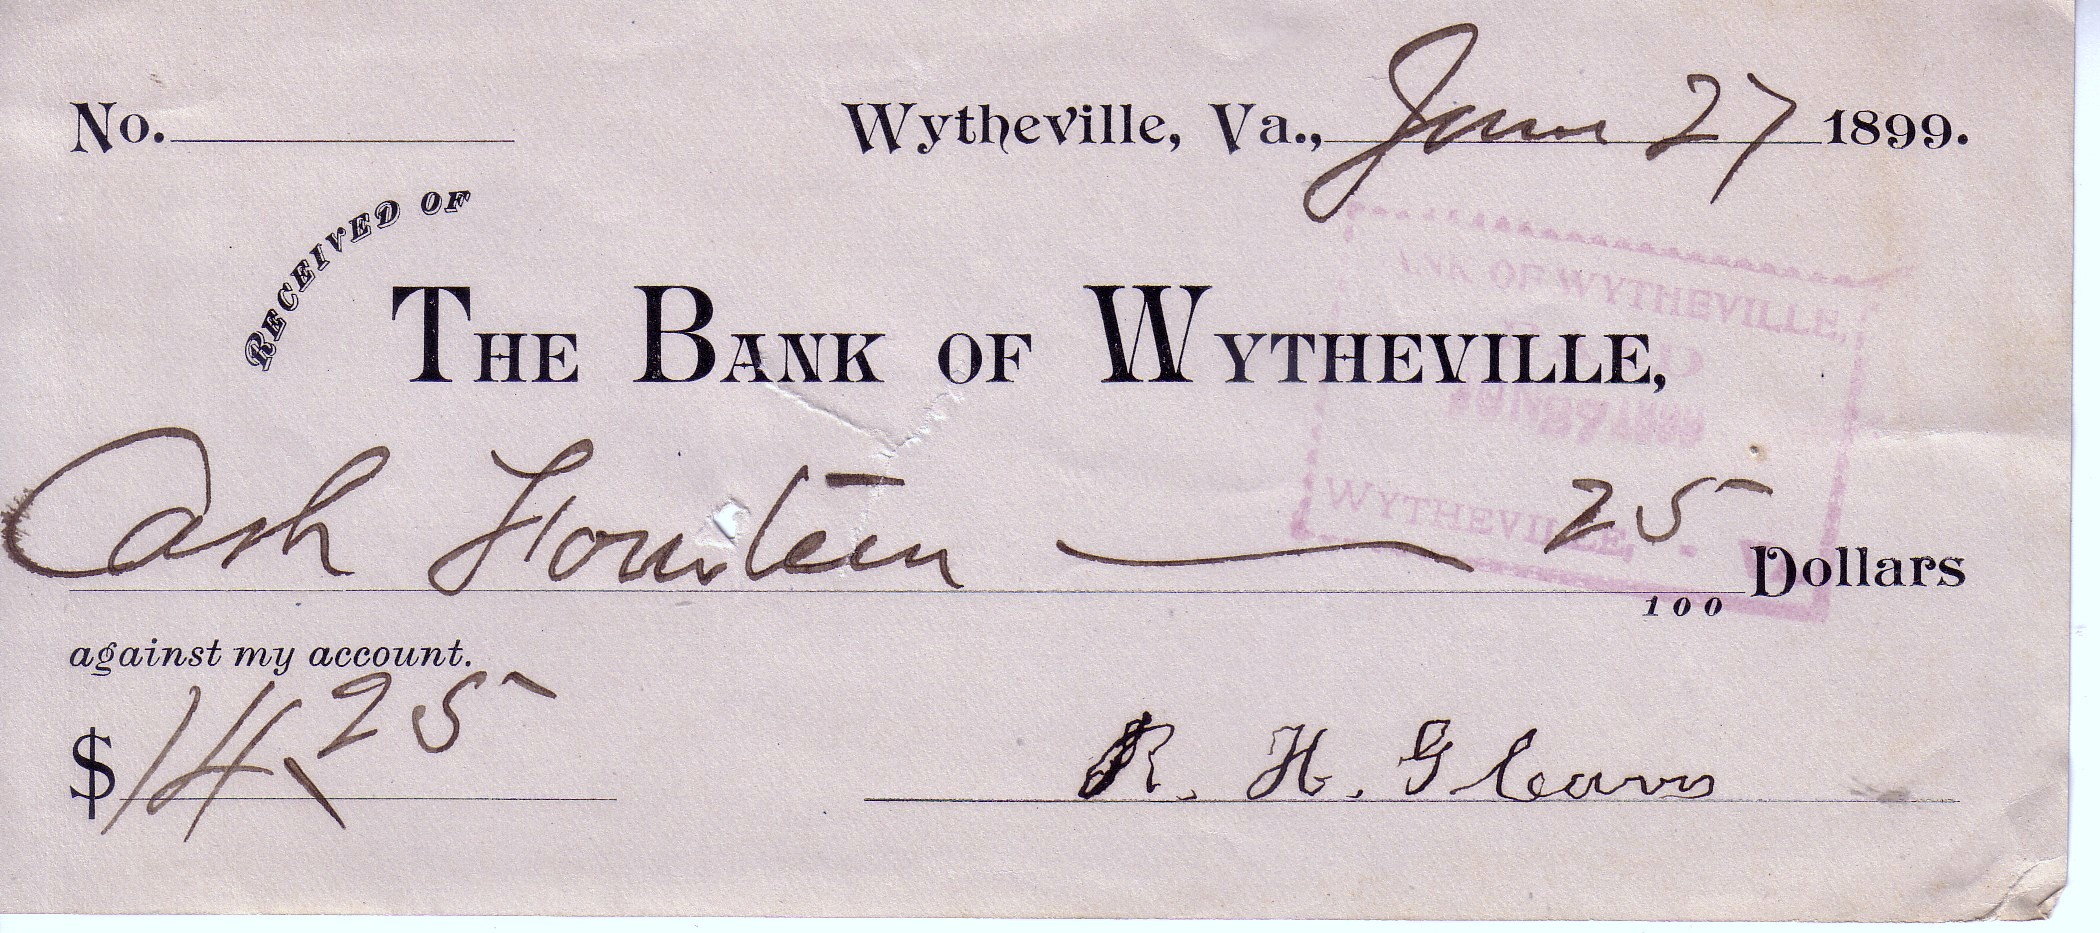 No. Wytheville, Va., June 27 1899.
RECEIVED OF
THE BANK OF WYTHEVILLE,
OF WYTHEVILLE,
WYTHEVILLE
Cash Fourteen 25
100 Dollars
against my account.
$14.25
R. H. Gleaves